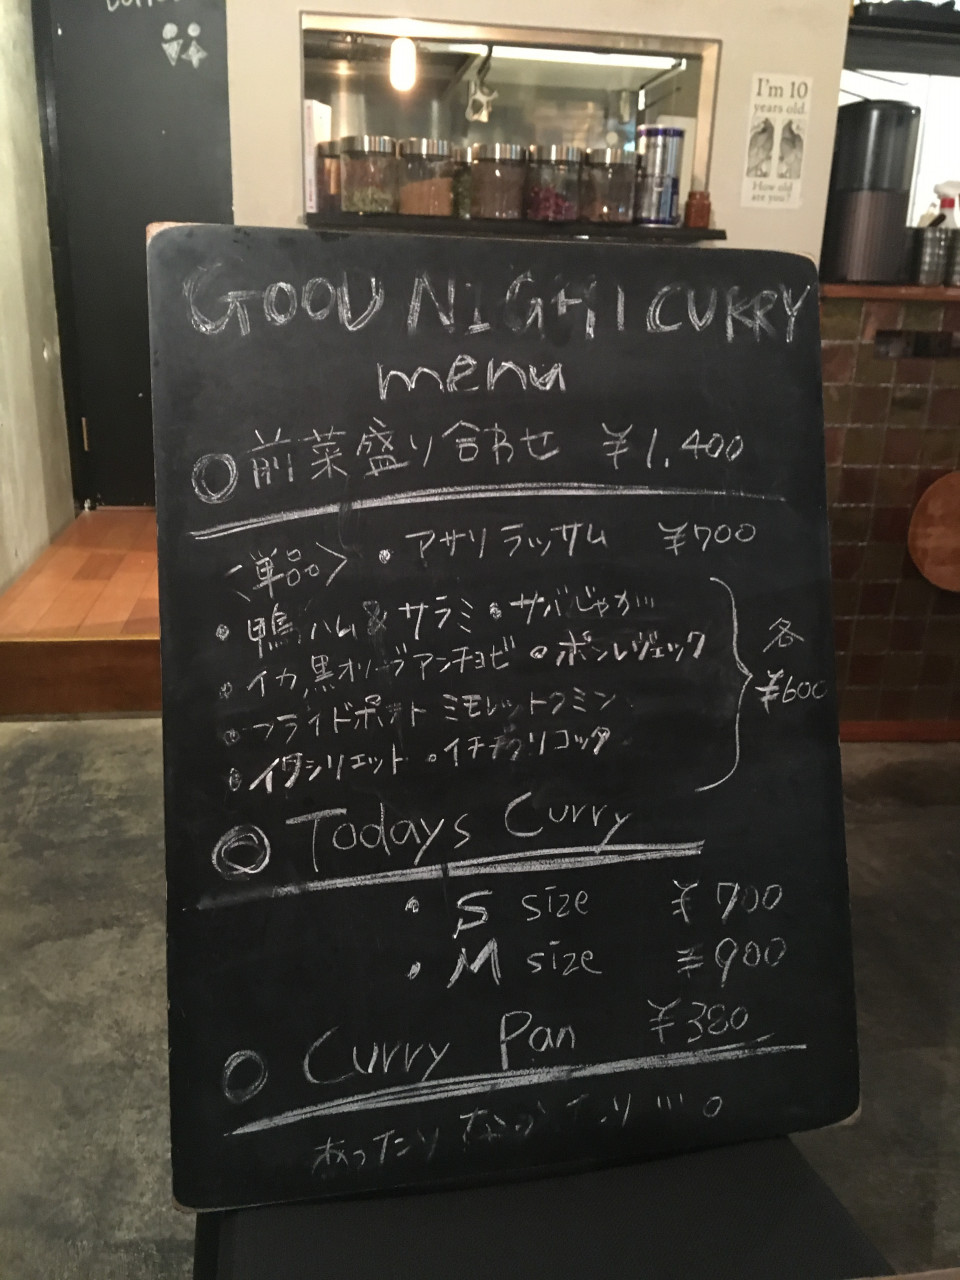 I'm 10
years old.
How old
are you?
GOOD NIGHT CURRY
menu
◎前菜盛り合わせ ¥1,400
〈単品〉・アサリラッサム ¥700
・鴨ハム&サラミ・サバじゃが
・イカ黒オリーブアンチョビ・ポンレヴェック
・フライドポテトミモレットクミン
・イワシリエット・イチヂクリコッタ
各
¥600
◎Todays Curry
・S size ¥700
・M size ¥900
○Curry Pan ¥380
あったりなかったり…。